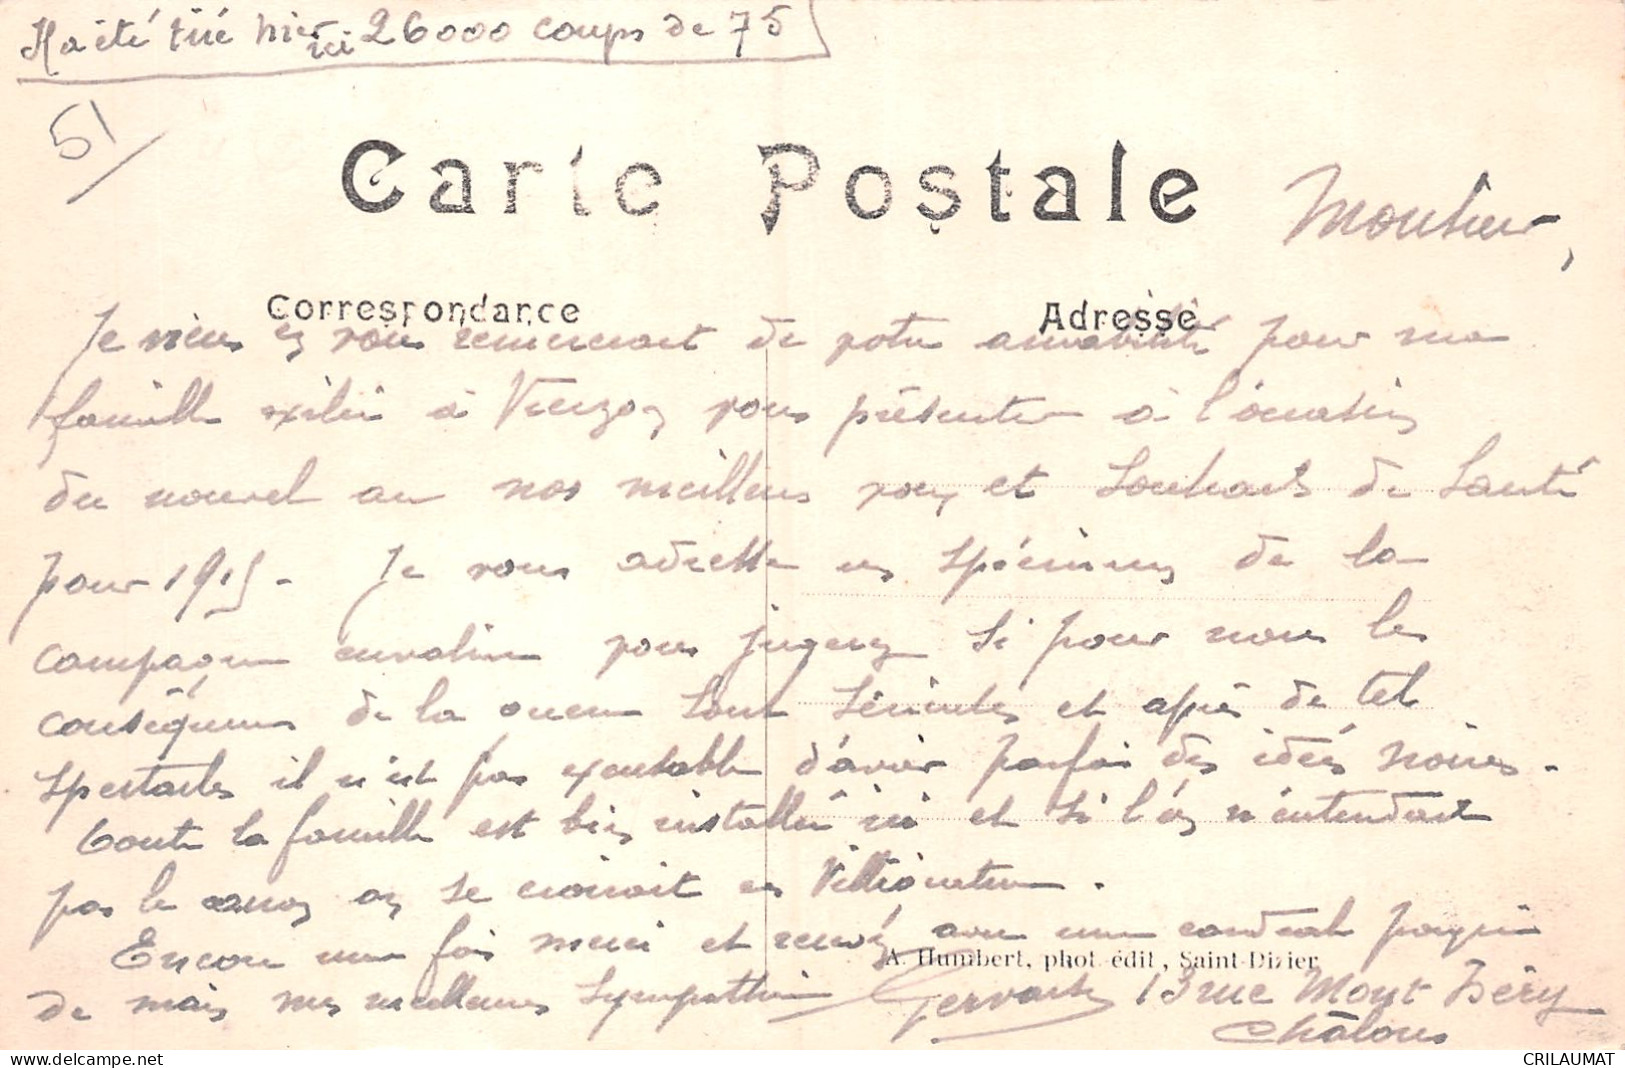 Il a été tiré hier ici 26000 coups de 75
51
Carte Postale
Monsieur,
Correspondance
Adresse
Je viens en vous remerciant de votre amabilité pour ma
famille exilée à Vierzon vous présenter à l'occasion
du nouvel an nos meilleurs voeux et souhaits de santé
pour 1915 - Je vous adresse un spécimen de la
campagne vous jugerez si pour nous les
conséquences de la guerre sont et après de tels
spectacles il n'est pas d'avoir parfois des idées noires.
Toute la famille est bien installée ici et si l'on n'entendait
pas le canon on se croirait en villégiature.
Encore une fois merci et recevez avec une cordiale poignée
A. Humbert, phot. édit., Saint-Dizier
de main mes meilleures sympathies Gervaise 13 rue Mont Héry
Châlons
CRILAUMAT